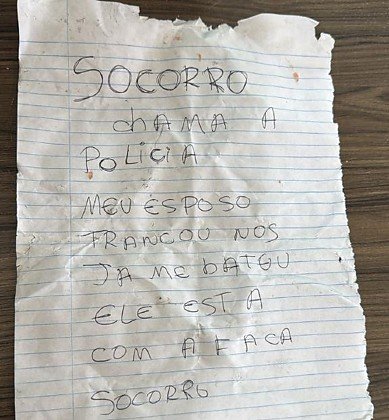 SOCORRO
chAMA A
POLICIA
MEU ESPOSO
TRANCOU NOS
JA ME bATEU
ELE ESTA
COM A FACA
SOCORRO